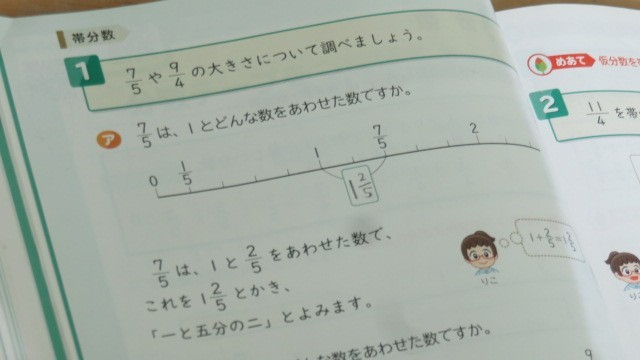 帯分数
1 7/5 や 9/4 の大きさについて調べましょう。
ア 7/5 は、1とどんな数をあわせた数ですか。
0 1/5 1 7/5 2
1 2/5
7/5 は、1と 2/5 をあわせた数で、
これを 1 2/5 とかき、
「一と五分の二」とよみます。
1+2/5=1 2/5
りこ
な数をあわせた数ですか。
めあて 仮分数を
2 11/4 を帯
9